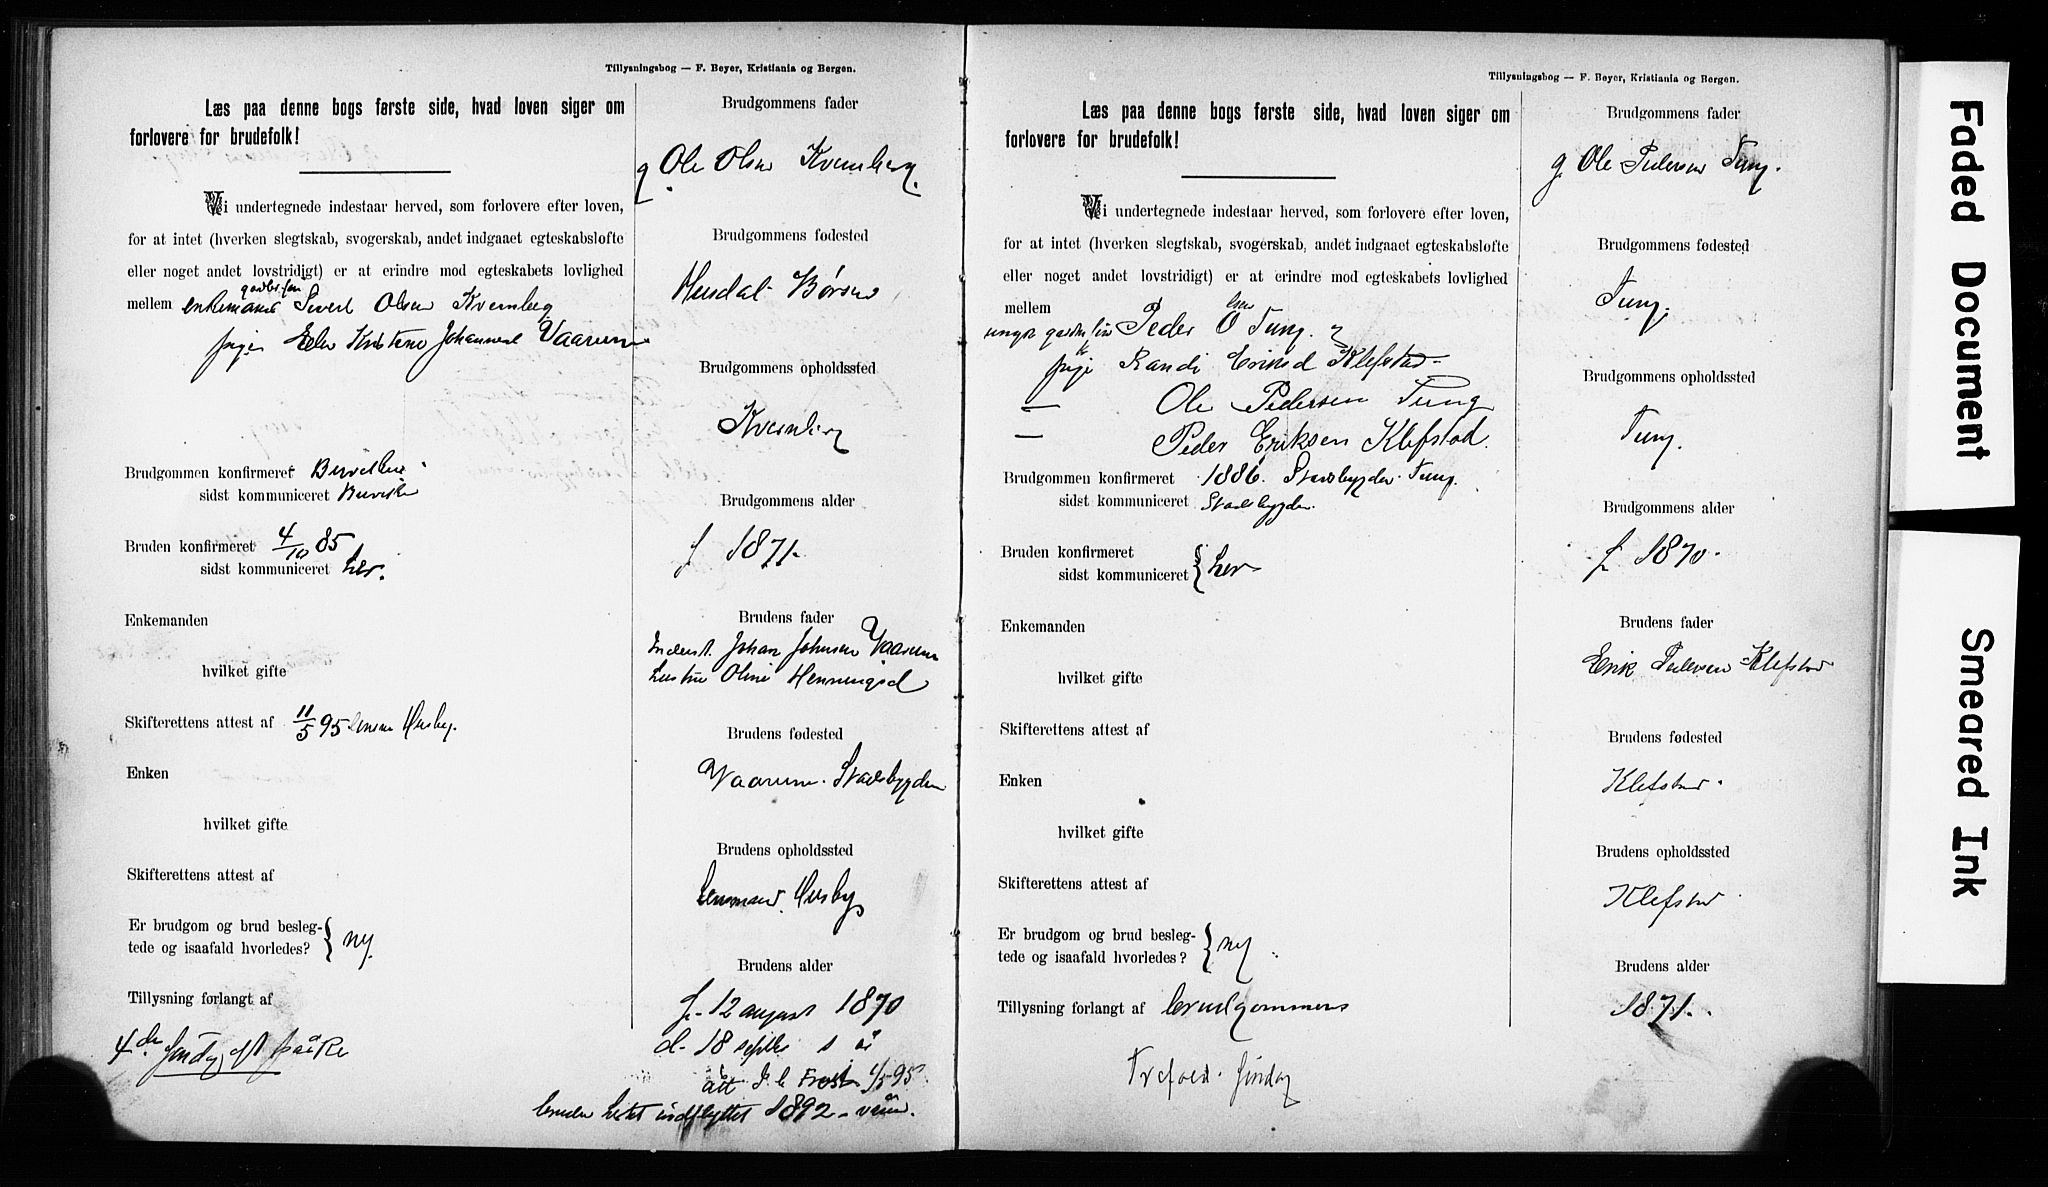 Tillysningsbog — F. Beyer, Kristiania og Bergen.
Læs paa denne bogs første side, hvad loven siger om
forlovere for brudefolk!
Vi undertegnede indestaar herved, som forlovere efter loven,
for at intet (hverken slegtskab, svogerskab, andet indgaaet egteskabsløfte
eller noget andet lovstridigt) er at erindre mod egteskabets lovlighed
mellem enkemand Sivert Olsen Kvernberg
pige Kristine Vaarum
Brudgommen konfirmeret
sidst kommuniceret
Bruden konfirmeret 4/10 85
sidst kommuniceret her.
Enkemanden
hvilket gifte
Skifterettens attest af 11/5 95 Husby.
Enken
hvilket gifte
Skifterettens attest af
Er brudgom og brud besleg-
tede og isaafald hvorledes? } ny.
Tillysning forlangt af
4de
Brudgommens fader
g Ole Olsen Kvernberg.
Brudgommens fødested
Børsen
Brudgommens opholdssted
Kvernberg
Brudgommens alder
f 1871.
Brudens fader
Inderst. Johan Johnsen Vaarum
Oline Henningsd
Brudens fødested
Vaarum. Stadsbygden
Brudens opholdssted
Lensmand Husby
Brudens alder
f. 12 august 1870
d. 18 septbr s år
att Frost 4/5 95
bruden indflyttet 1892
Tillysningsbog — F. Beyer, Kristiania og Bergen.
Læs paa denne bogs første side, hvad loven siger om
forlovere for brudefolk!
Vi undertegnede indestaar herved, som forlovere efter loven,
for at intet (hverken slegtskab, svogerskab, andet indgaaet egteskabsløfte
eller noget andet lovstridigt) er at erindre mod egteskabets lovlighed
mellem
Peder Olsen Tung.
pige Randi Eriksd Klefstad
— Ole Pedersen Tung
— Peder Eriksen Klefstad.
Brudgommen konfirmeret 1886. Stadsbygden. Tung.
sidst kommuniceret Stadsbygden.
Bruden konfirmeret
sidst kommuniceret } her
Enkemanden
hvilket gifte
Skifterettens attest af
Enken
hvilket gifte
Skifterettens attest af
Er brudgom og brud besleg-
tede og isaafald hvorledes? } ny.
Tillysning forlangt af brudgommens
Brudgommens fader
g. Ole Pedersen Tung.
Brudgommens fødested
Tung.
Brudgommens opholdssted
Tung.
Brudgommens alder
f. 1870.
Brudens fader
Erik Pedersen Klefstad
Brudens fødested
Klefstad.
Brudens opholdssted
Klefstad.
Brudens alder
1871.
Faded Document
Smeared Ink